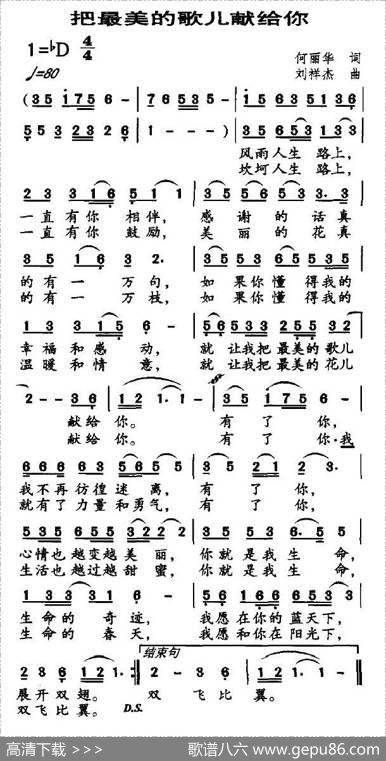 把最美的歌儿献给你
1=♭D 4/4
♩=80
何丽华 词
刘祥杰 曲
(3 5 i 7 5 6 - | 7 6 5 3 5 - | 1 5 6 3 5 1 3 6
5 5 3 2 3 2 6 | 1 - - -) | 3 5 6 5 3 1 3 3
风雨人生 路上,
坎坷人生 路上,
2 3 3 1 6 5 1 1 | 3 5 5 6 5 3 3. 3
一直有你 相伴, 感谢的话真
一直有你 鼓励, 美丽的花真
3 5 1 6 3 2. | 3 5 3 5 6 5 5 3 5
的有一 万句, 如果你懂 得我的
的有一 万枝, 如果你懂 得我的
1 3 3 1 5 6 - | 5 6 5 3 3 2 5 5 3 2
幸福和感 动, 就 让我把 最美的歌儿
温暖和情 意, 就 让我把 最美的花儿
2 - - 3 6 | 1 2 1. 1 - | 3 5 1 7 5 6 -
献给 你。 有了 你,
献给 你。 有了 你.我
6 6 6 6 3 5 6 5 5 | 3 2 2 1 2 3.
我不再彷徨迷 离, 有了 你,
就有了力量和勇气, 有了 你,
5 3 5 6 5 5 3 2 2 2 | 3 5 5 3. 6 5
心情也越变越美 丽, 你就是我生 命,
生活也越过越甜 蜜, 你就是我生 命,
1 3 3 3 1 6 - | 5 6 1 6 6 5 3 6.
生命的 奇迹, 我愿在你的蓝天下,
生命的 春天, 我愿和你在阳光下,
结束句
2 3 6 1 2 1. :| 2 3 - 6 - | 1 2 1 1 - -
展开双翅。 双 飞比 翼。
双飞比翼。 D.S.
高清下载 >>> 歌谱八六 www.gepu86.com